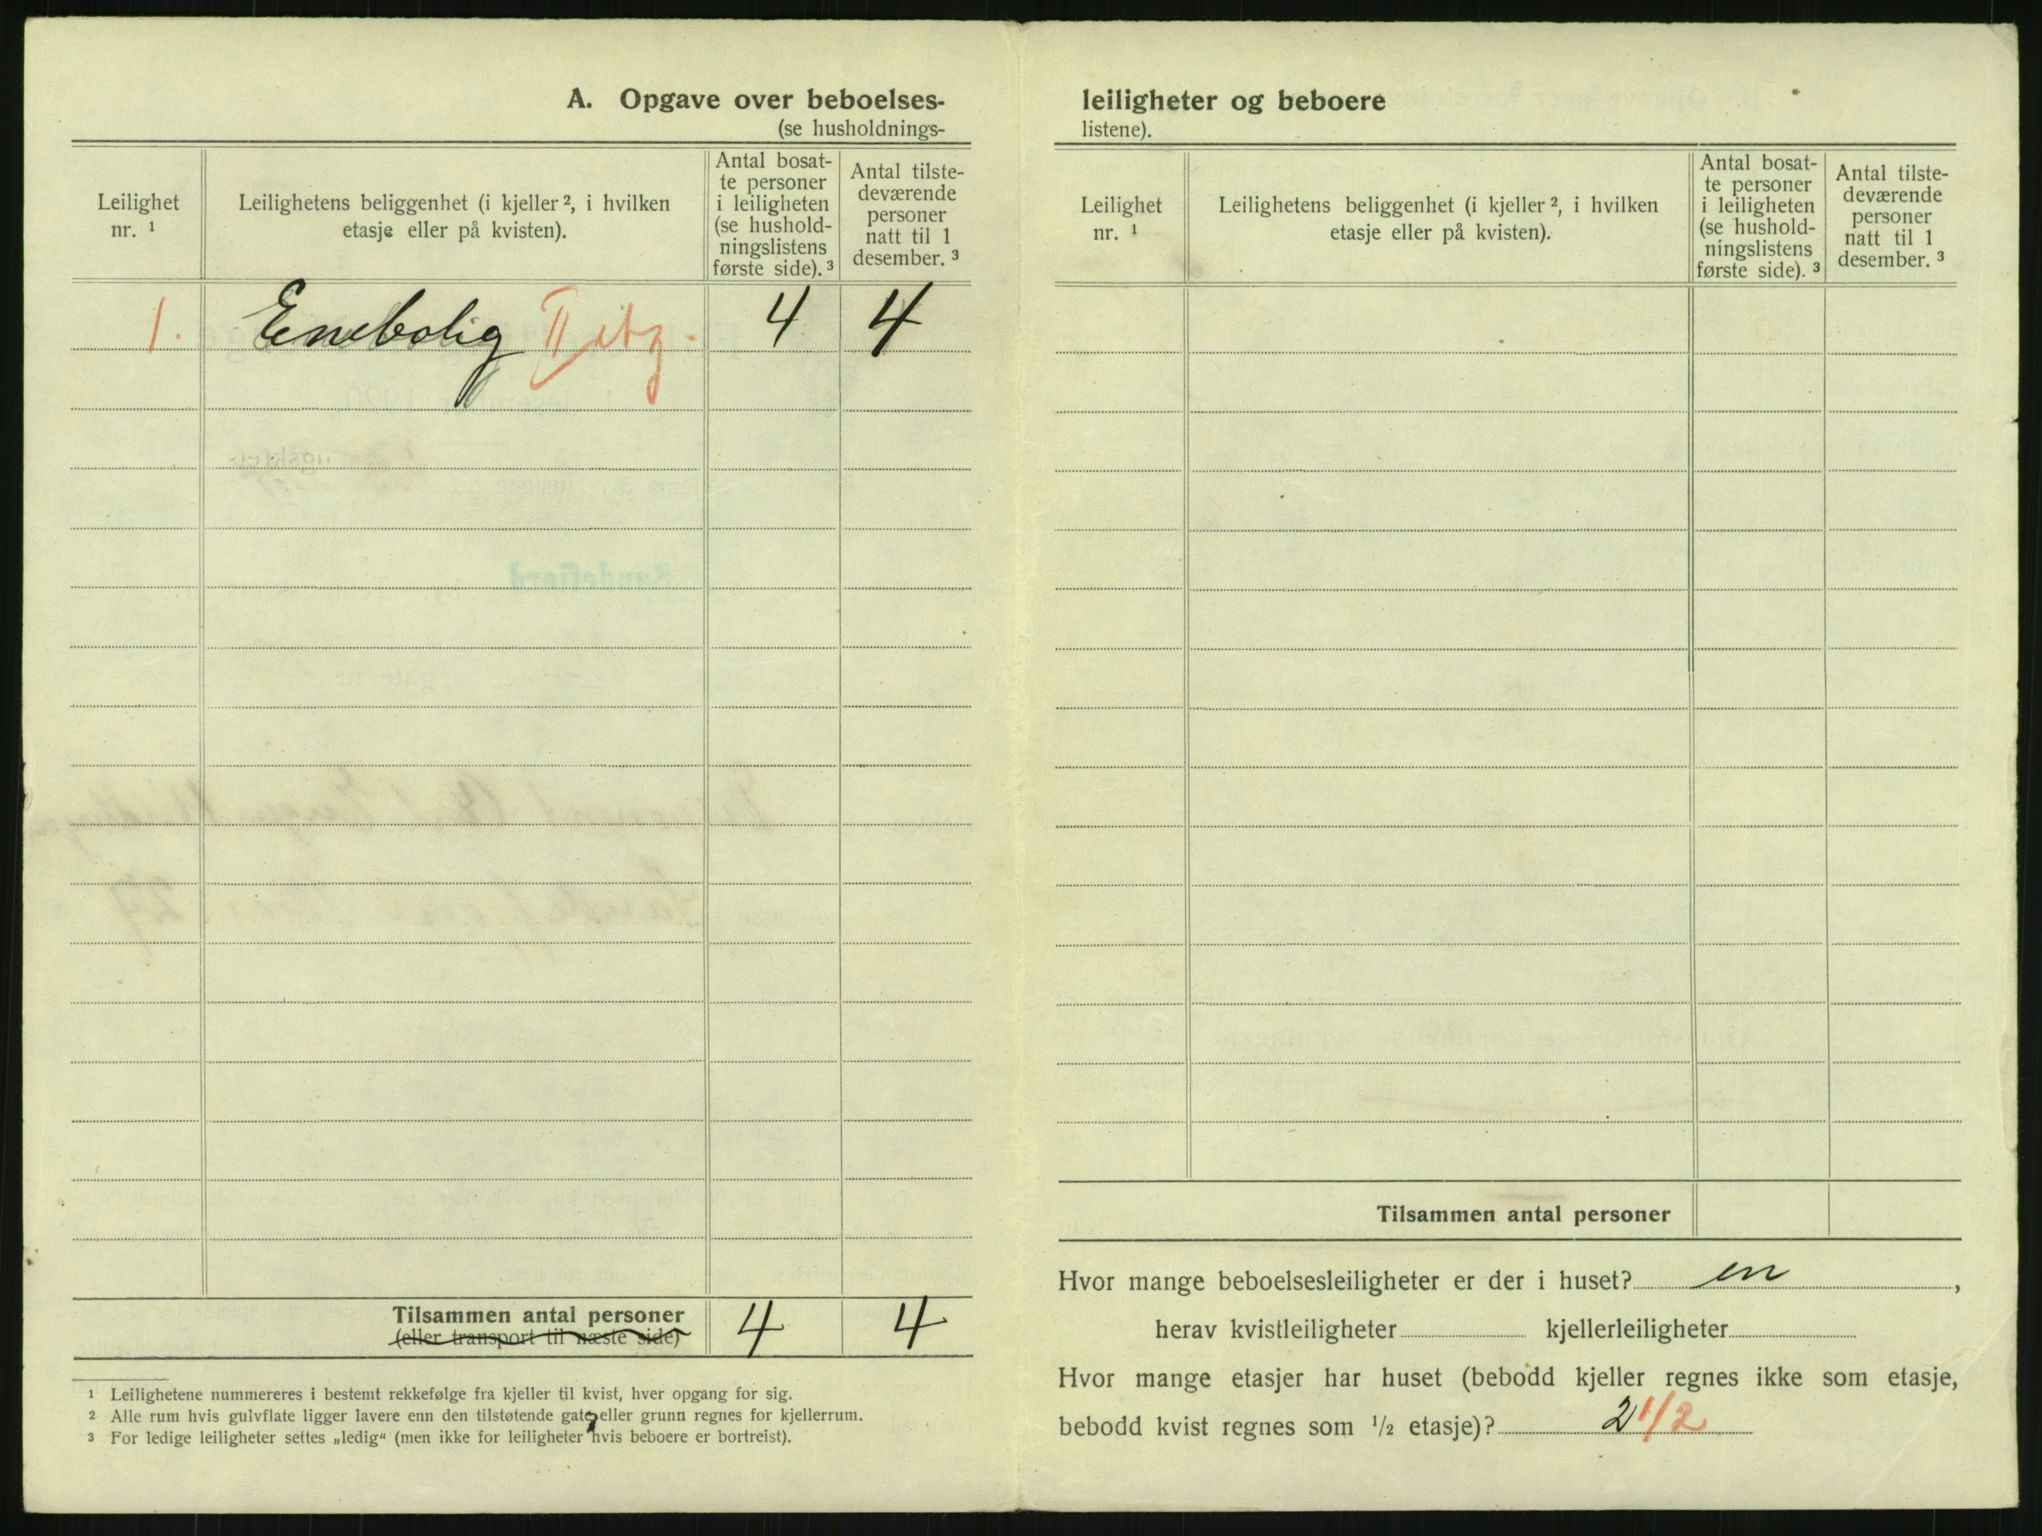 A. Opgave over beboelses-
(se husholdnings-
Leilighet
nr. 1
Leilighetens beliggenhet (i kjeller 2, i hvilken
etasje eller på kvisten).
Antal bosat-
te personer
i leiligheten
(se hushold-
ningslistens
første side). 3
Antal tilste-
deværende
personer
natt til 1
desember. 3
1. Enebolig II etg. 4 4
Tilsammen antal personer 4 4
(eller transport til næste side)
1 Leilighetene nummereres i bestemt rekkefølge fra kjeller til kvist, hver opgang for sig.
2 Alle rum hvis gulvflate ligger lavere enn den tilstøtende gate eller grunn regnes for kjellerrum.
3 For ledige leiligheter settes „ledig“ (men ikke for leiligheter hvis beboere er bortreist).
leiligheter og beboere
listene).
Leilighet
nr. 1
Leilighetens beliggenhet (i kjeller 2, i hvilken
etasje eller på kvisten).
Antal bosat-
te personer
i leiligheten
(se hushold-
ningslistens
første side). 3
Antal tilste-
deværende
personer
natt til 1
desember. 3
Tilsammen antal personer
Hvor mange beboelsesleiligheter er der i huset? en ,
herav kvistleiligheter kjellerleiligheter
Hvor mange etasjer har huset (bebodd kjeller regnes ikke som etasje,
bebodd kvist regnes som 1/2 etasje)? 2 1/2